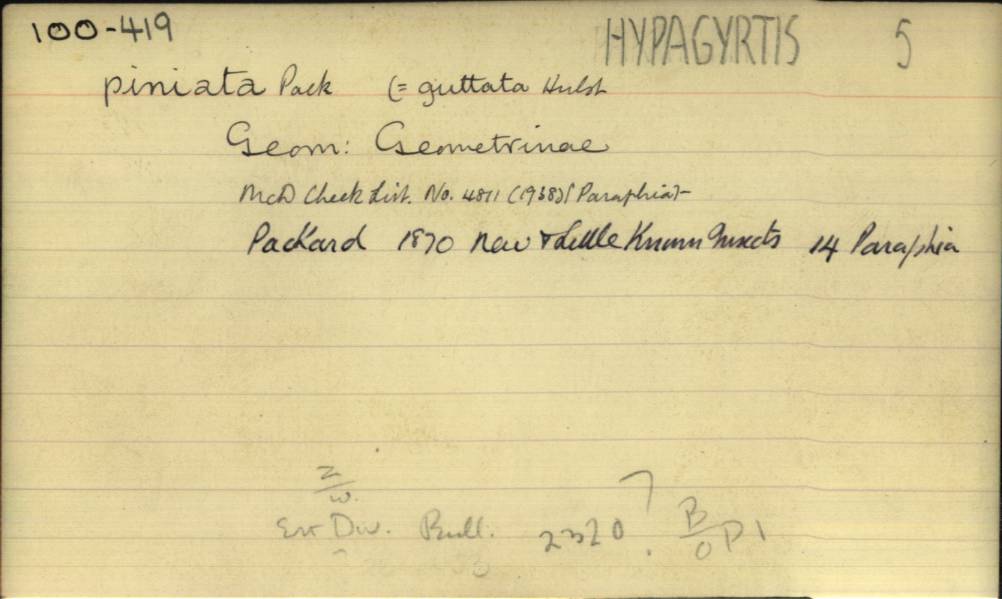 100-419 HYPAGYRTIS 5
piniata Pack (= guttata Hulst
Geom: Geometrinae
McD Check List. No. 4811 (1938) (Paraphia)-
Packard 1870 New & Little Known Insects 14 Paraphia
Div. Bull.